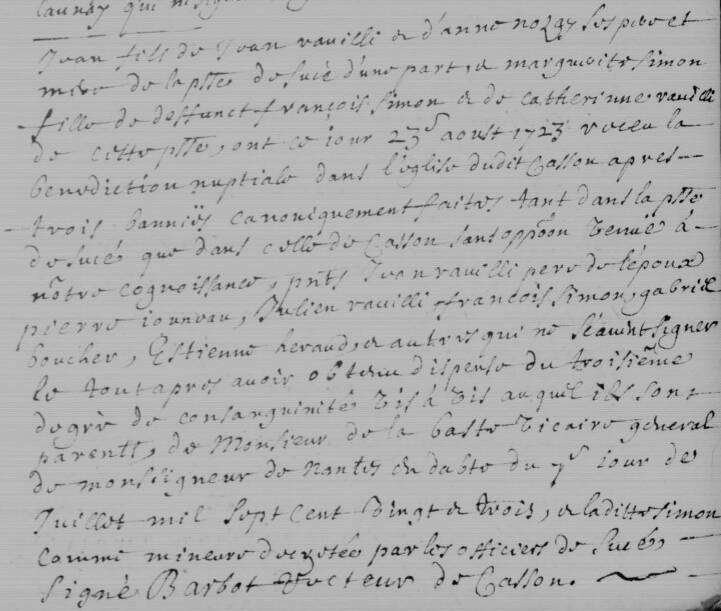 launay qui ne signe
Jean fils de Jean ravilli & d'anne nozay ses pere et
mere de la psse de sucé d'une part, & marguerite simon
fille de deffunct françois simon & de catherinne ravilli
de cette psse, ont ce jour 23e aoust 1723 receu la
benediction nuptiale dans l'église dudit Casson apres
trois banniës canoniquement faites tant dans la psse
de sucé que dans celle de Casson sans oppôon venuë à
nôtre cognoissance, pnts Jean ravilli pere de l'époux
pierre iouneau, Julien ravilli françois simon, gabriel
boucher, Estienne heraud, & autres qui ne sçavent signer
le tout apres avoir obtenu dispense du troisiême
degré de consanguinité vis à vis auquel ils sont
parents, de Monsieur de la baste vicaire general
de monseigneur de Nantes en dabte du 7e iour de
Juillet mil sept cent vingt & trois, & laditte simon
comme mineure decretée par les officiers de sucé,
signé Barbot Recteur de Casson.